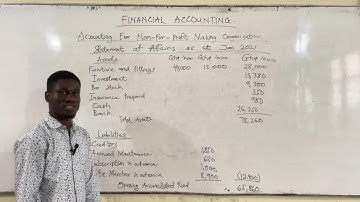 FINANCIAL ACCOUNTING
Accounting For Non-For-Profit Making Organisation
Statement of Affairs as at Jan 2021
Assets Gh¢'000 Gh¢'000 Gh¢'000
Furniture and Fittings 40,000 12,000 28,000
Investment 13,380
Bar Stock 9,300
Insurance Prepaid 350
Cash 980
Bank 26,250
Total Assets 78,260
Liabilities
Creditors 1,850
Accrued Maintenance 650
Subscription in advance 1,000
Life Member in advance 8,900 (12,400)
Opening Accumulated Fund 65,860